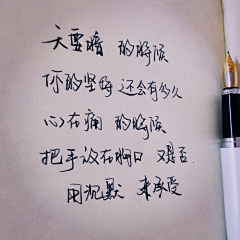 天要暗 的时候
你的坚持 还会有多久
心在痛 的时候
把手放在胸口 又是否
用沉默 来承受